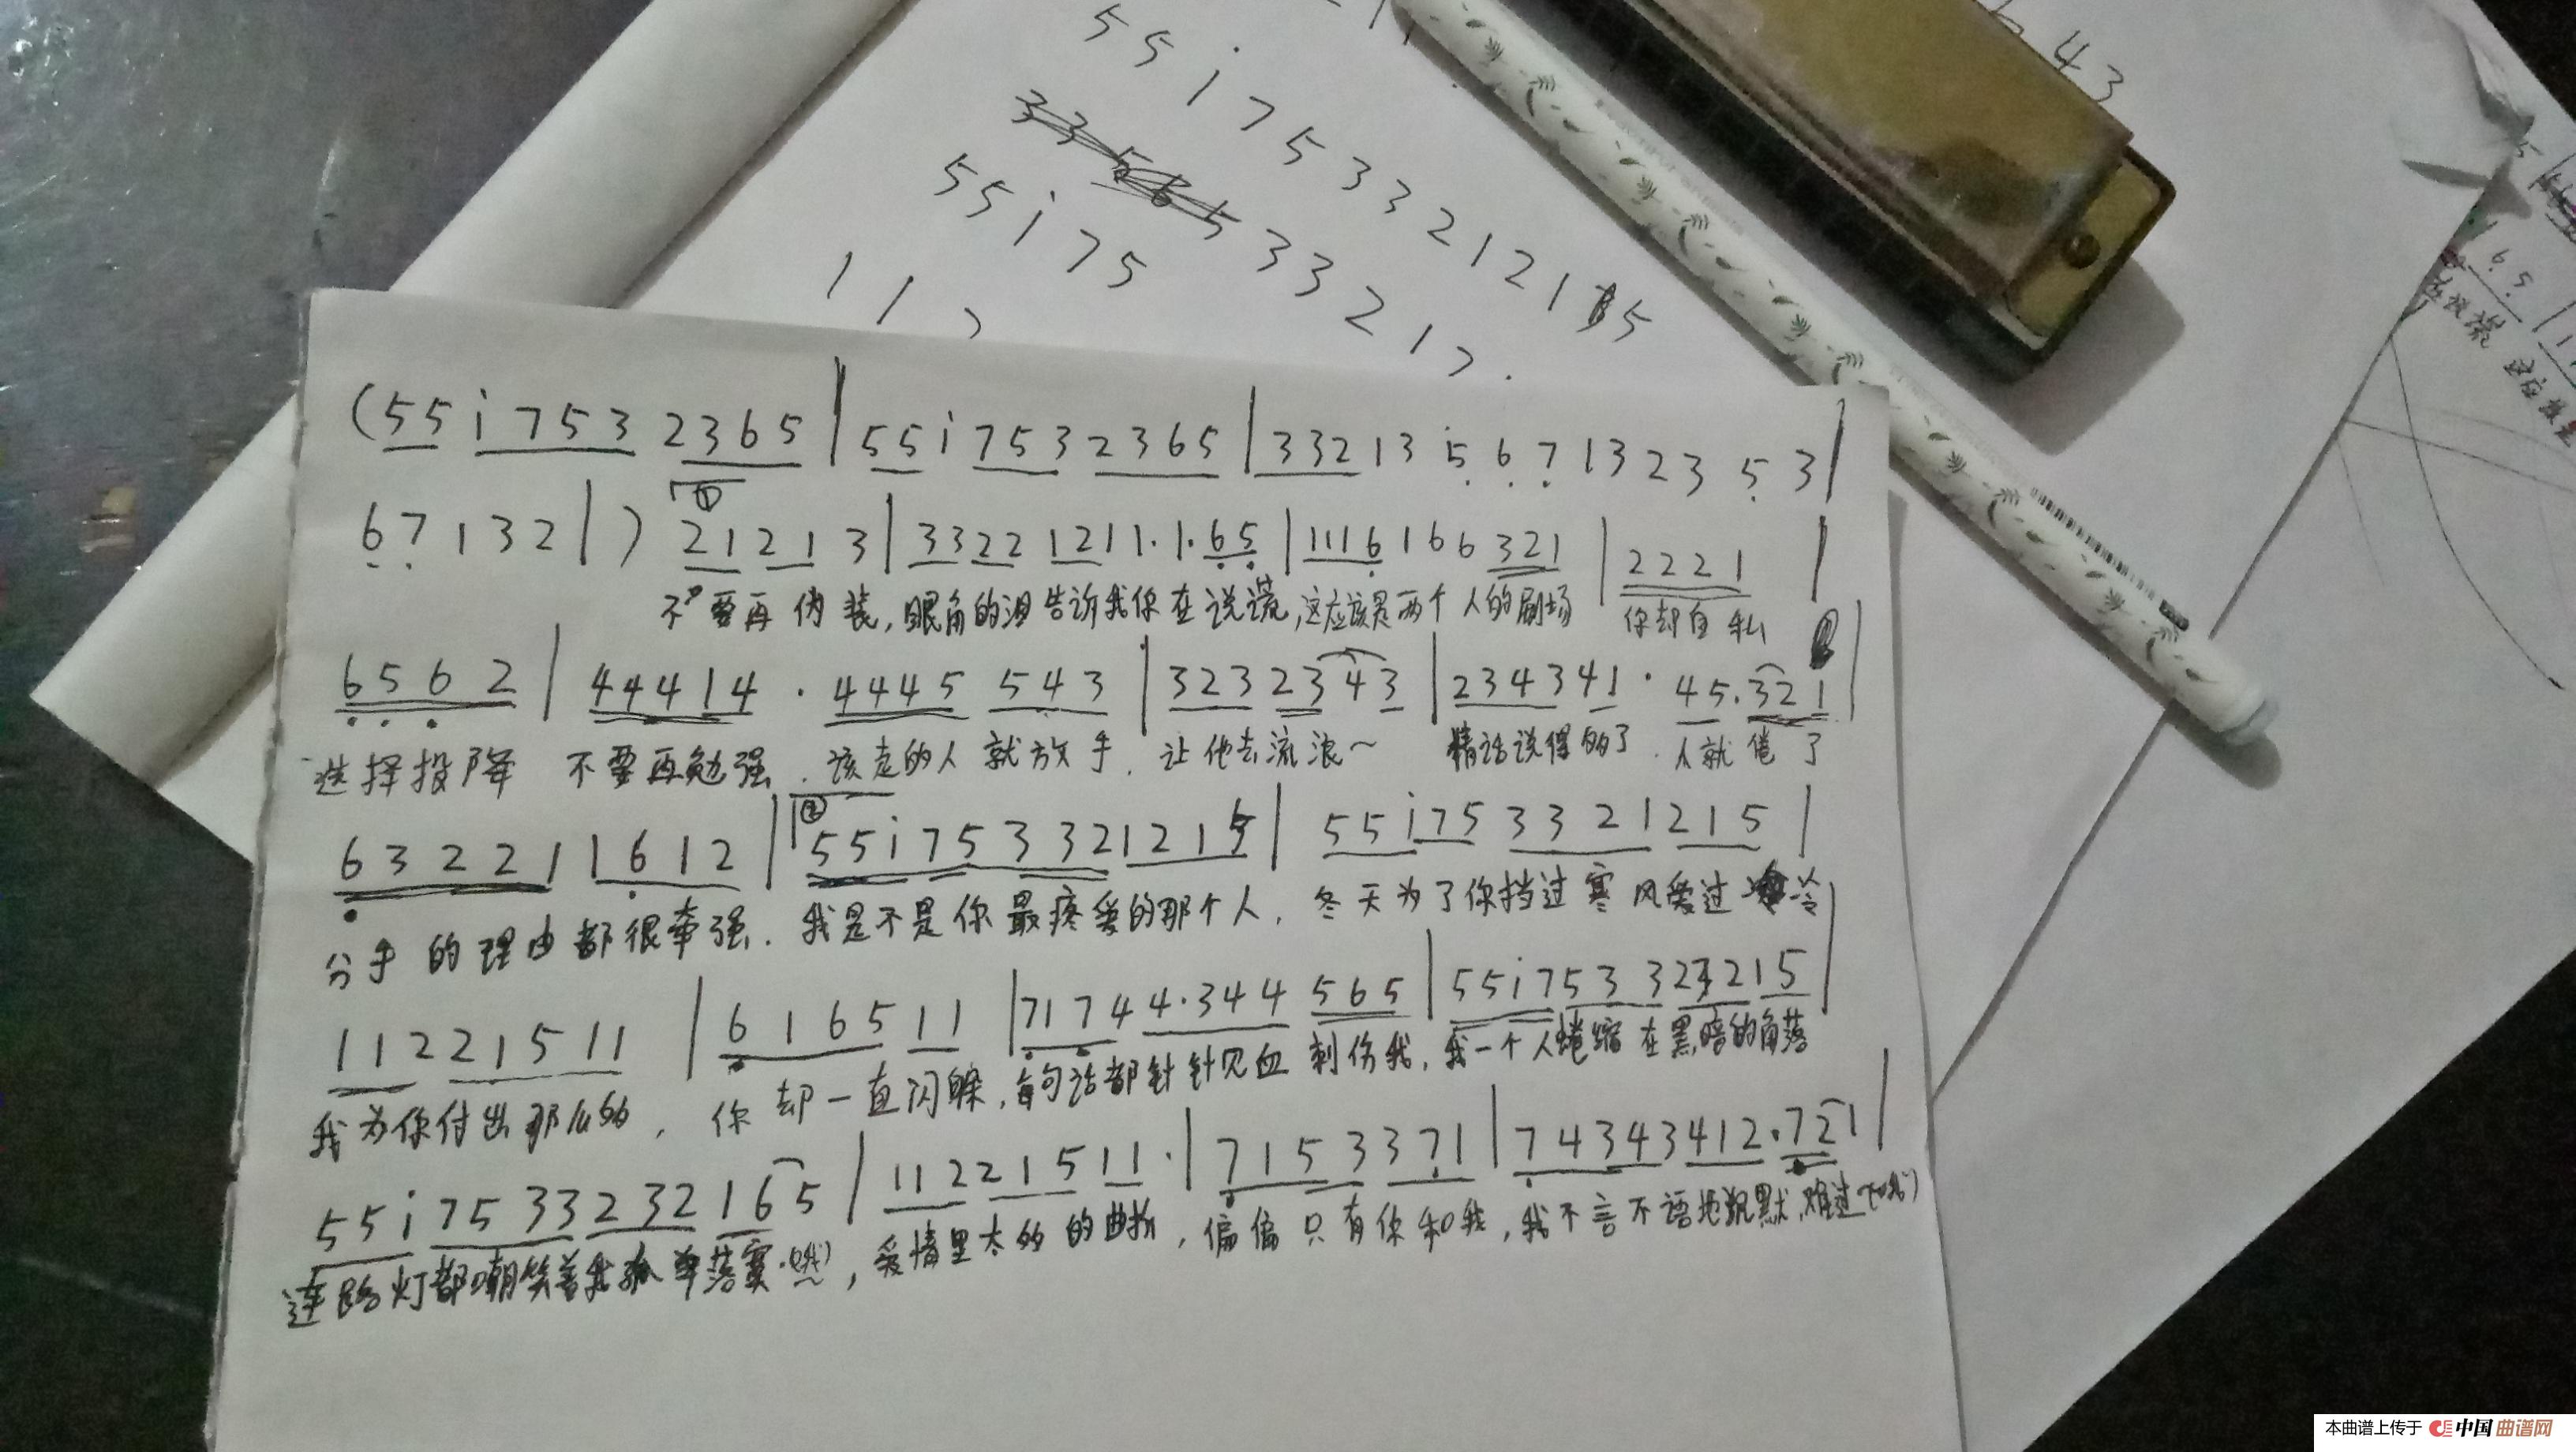 43
55i753321215
335653321
55i75
11
(55i7532365|55i7532365|3321356713235 3|
67132|) ① 21213|33221211.1.65|1116166321|2221|
不要再伪装,眼角的泪告诉我你在说谎,这应该是两个人的剧场 你却自私
6562|44414.4445 543|3232343|234341.45.321|
选择投降 不要再勉强.该走的人就放手.让他去流浪~ 情话说得多了.人就倦了
632211612|② 55i7533321215|55i753321215|
分手的理由都很牵强.我是不是你最疼爱的那个人,冬天为了你挡过寒风爱过冷
11221511|616511|71744.344565|55i7533 23215|
我为你付出那么多,你却一直闪躲,每句话都针针见血刺伤我,我一个人蜷缩在黑暗的角落
55i7533232165|11221511.|7153371|74343412.721|
连路灯都嘲笑着我孤单落寞(哦),爱情里太多的曲折,偏偏只有你和我,我不言不语地沉默,难过
本曲谱上传于 中国曲谱网